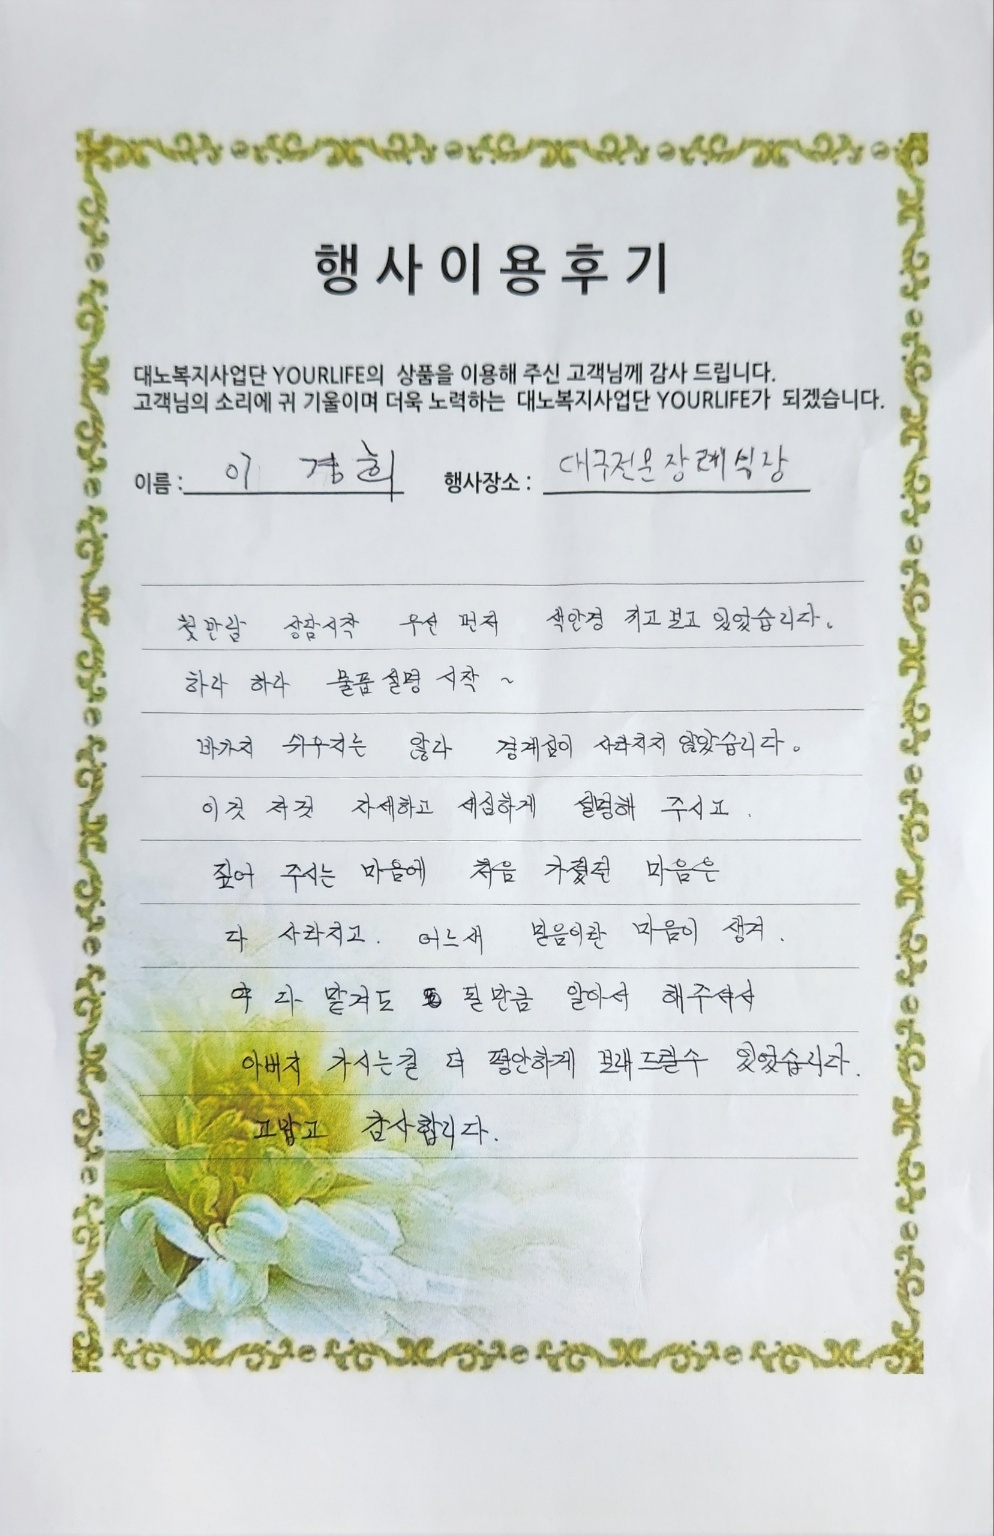 행사이용후기
대노복지사업단 YOURLIFE의 상품을 이용해 주신 고객님께 감사 드립니다.
고객님의 소리에 귀 기울이며 더욱 노력하는 대노복지사업단 YOURLIFE가 되겠습니다.
이름 : 이 경희 행사장소 : 대구전문장례식장
첫만남 상담시작 우선 먼저 색안경 끼고보고 있었습니다.
하나 하나 물품설명 시작 ~
바가지 쉬우지는 않나 경계심이 사라지지 않았습니다.
이것 저것 자세하고 세심하게 설명해 주시고.
짚어 주시는 마음에 처음 가졌던 마음은
다 사라지고. 어느새 믿음이란 마음이 생겨.
다 맡겨도 될만큼 알아서 해주셔서
아버지 가시는길 더 평안하게 보내드릴수 있었습니다.
고맙고 감사합니다.